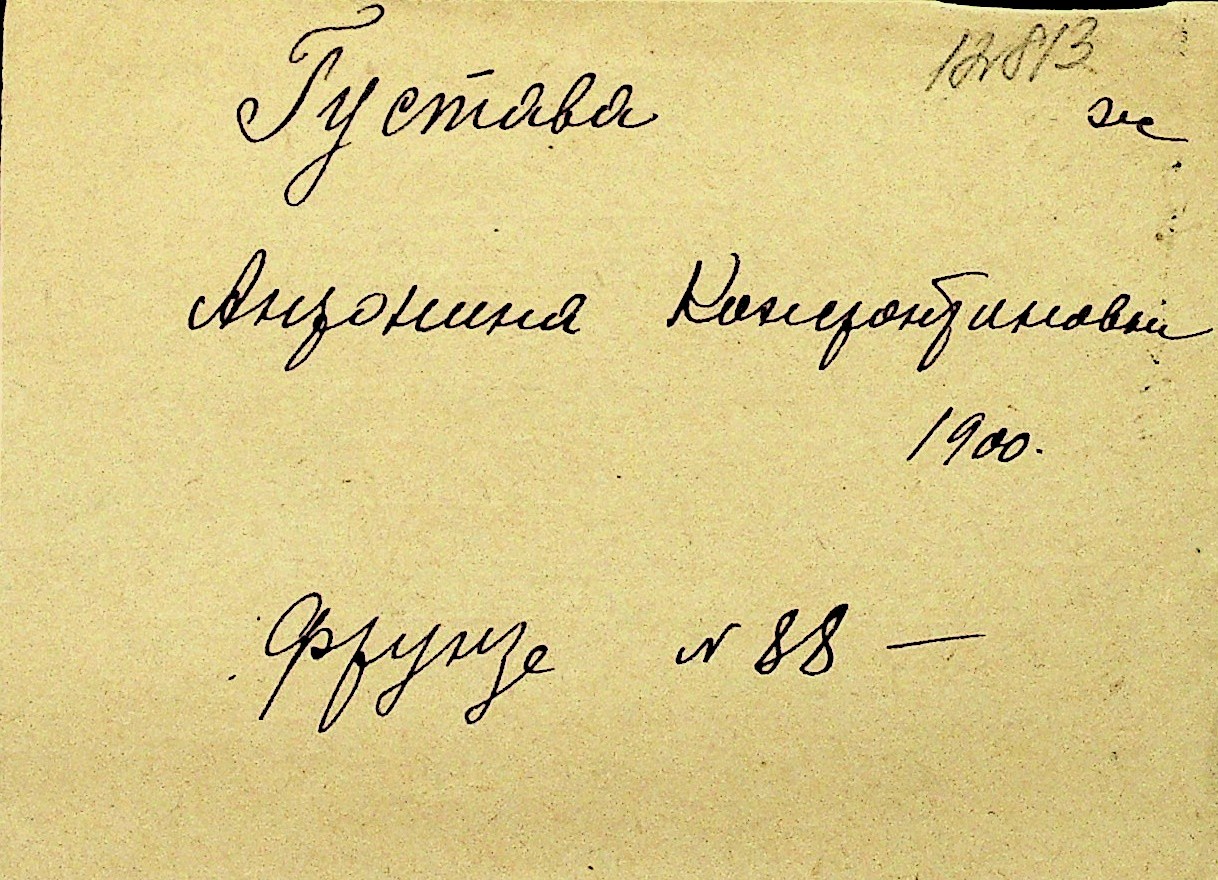 12813
Густава ж
Антонина Константиновн
1900.
Фрунзе № 88 —